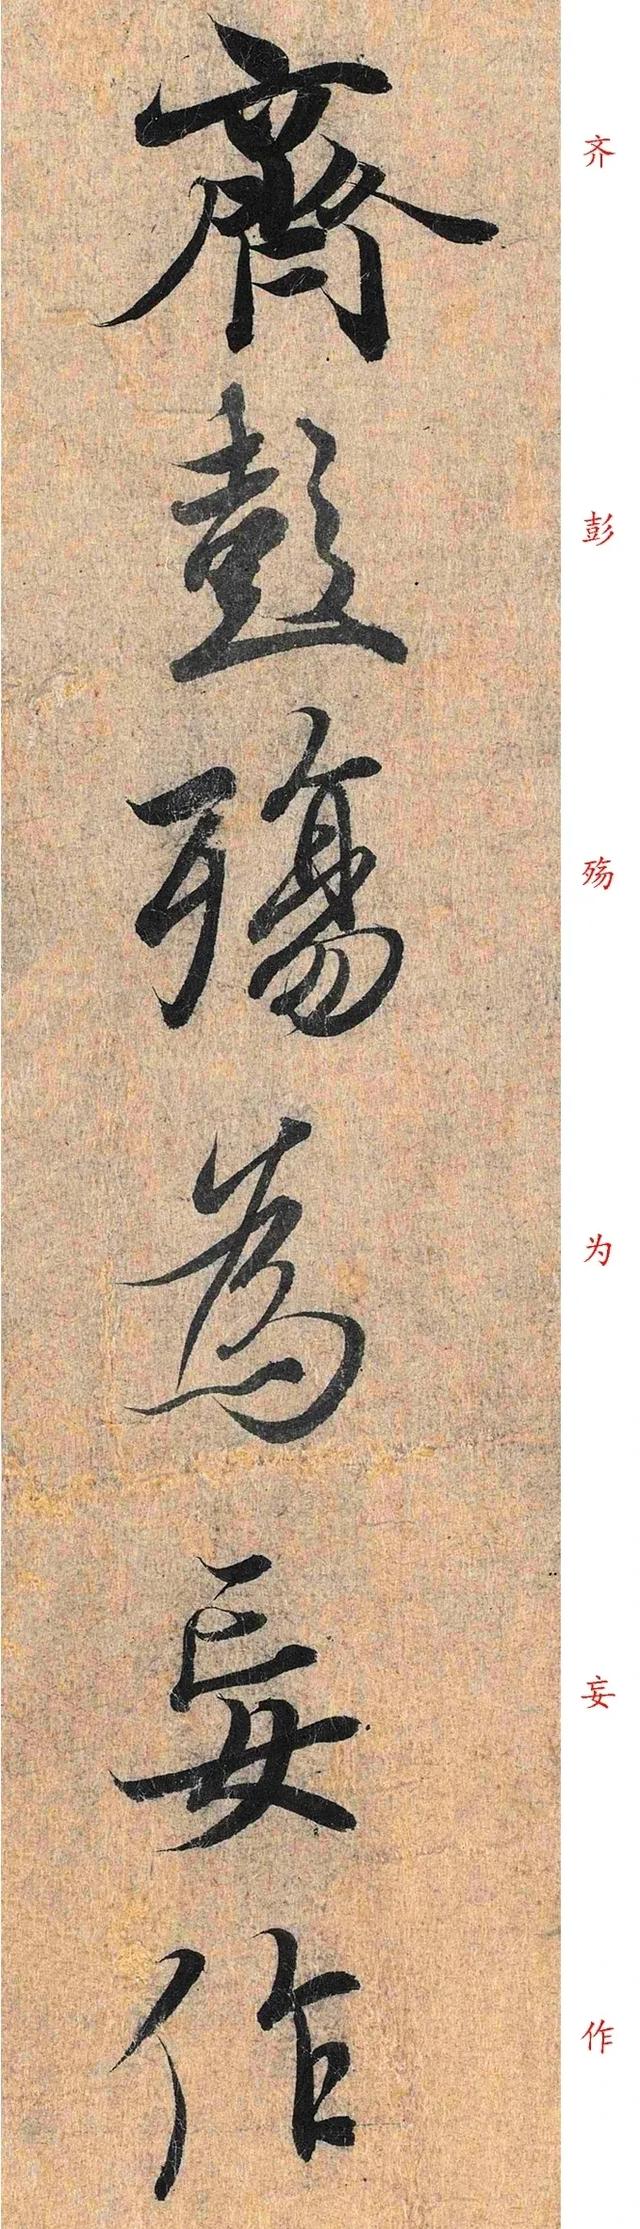 齊彭殤為妄作
齐
彭
殇
为
妄
作